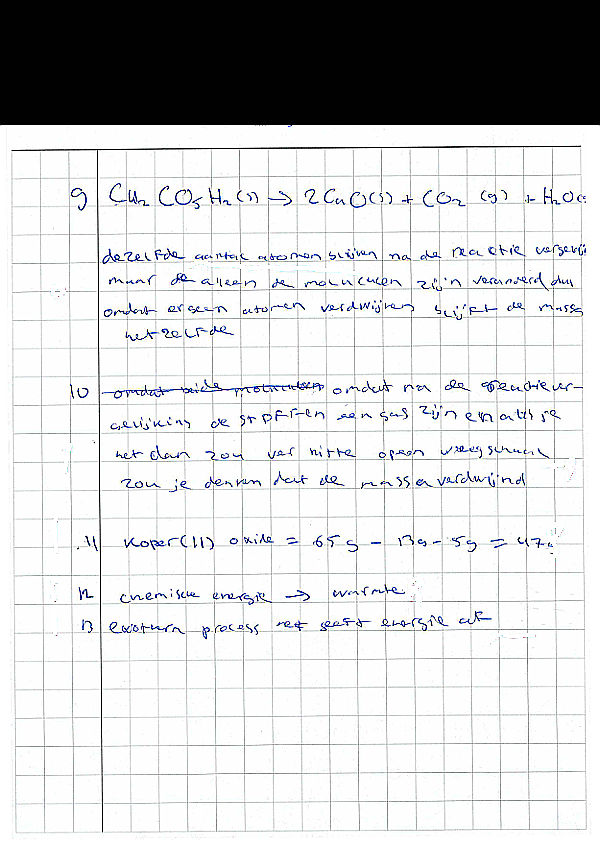 9 Cu₂ CO₅ H₂ (s) → 2 CuO(s) + CO₂ (g) + H₂O(
dezelfde aantal atomen blijven na de reactie vergelij
maar de alleen de moleculen zijn veranderd dus
omdat er geen atomen verdwijnen blijft de massa
het zelfde
10 omdat beide moleculen omdat na de reactiever-
gelijking de stoffen een gas zijn en als je
het dan zou verhitte op een weegschaal
zou je denken dat de massa verdwijnd
11 Koper(II) oxide = 65g - 13g - 5g = 47g
12 chemische energie → warmte
13 exotherm process het geeft energie af